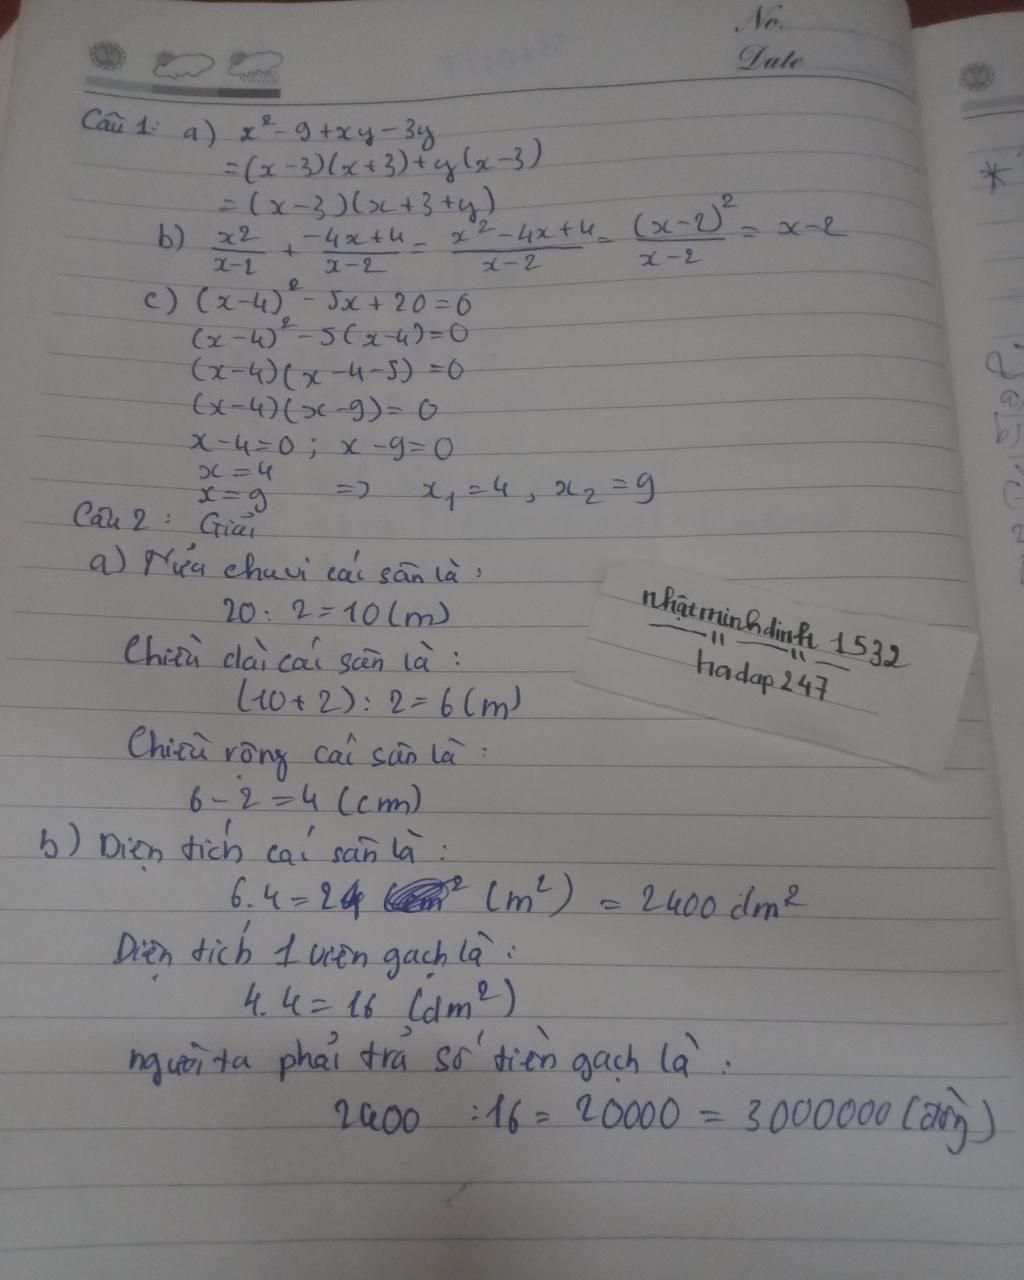 No.
Date
Câu 1: a) x² - 9 + xy - 3y
= (x-3)(x+3) + y(x-3)
= (x-3)(x+3+y)
b) x2/x-2 + -4x+4/x-2 = x²-4x+4/x-2 = (x-2)²/x-2 = x-2
c) (x-4)² - 5x + 20 = 0
(x-4)² - 5(x-4) = 0
(x-4)(x-4-5) = 0
(x-4)(x-9) = 0
x-4=0 ; x-9=0
x = 4
x = 9 => x₁ = 4, x₂ = 9
Câu 2: Giải
a) Nửa chu vi cái sân là:
20 : 2 = 10 (m)
Chiều dài cái sân là:
(10 + 2) : 2 = 6 (m)
Chiều rộng cái sân là:
6 - 2 = 4 (cm)
b) Diện tích cái sân là:
6.4 = 24 (m²) = 2400 dm²
Diện tích 1 viên gạch là:
4.4 = 16 (dm²)
người ta phải trả số tiền gạch là:
2400 :16 = 20000 = 3000000 (đồng)
nhậtminhdinh1532
hoidap247
*